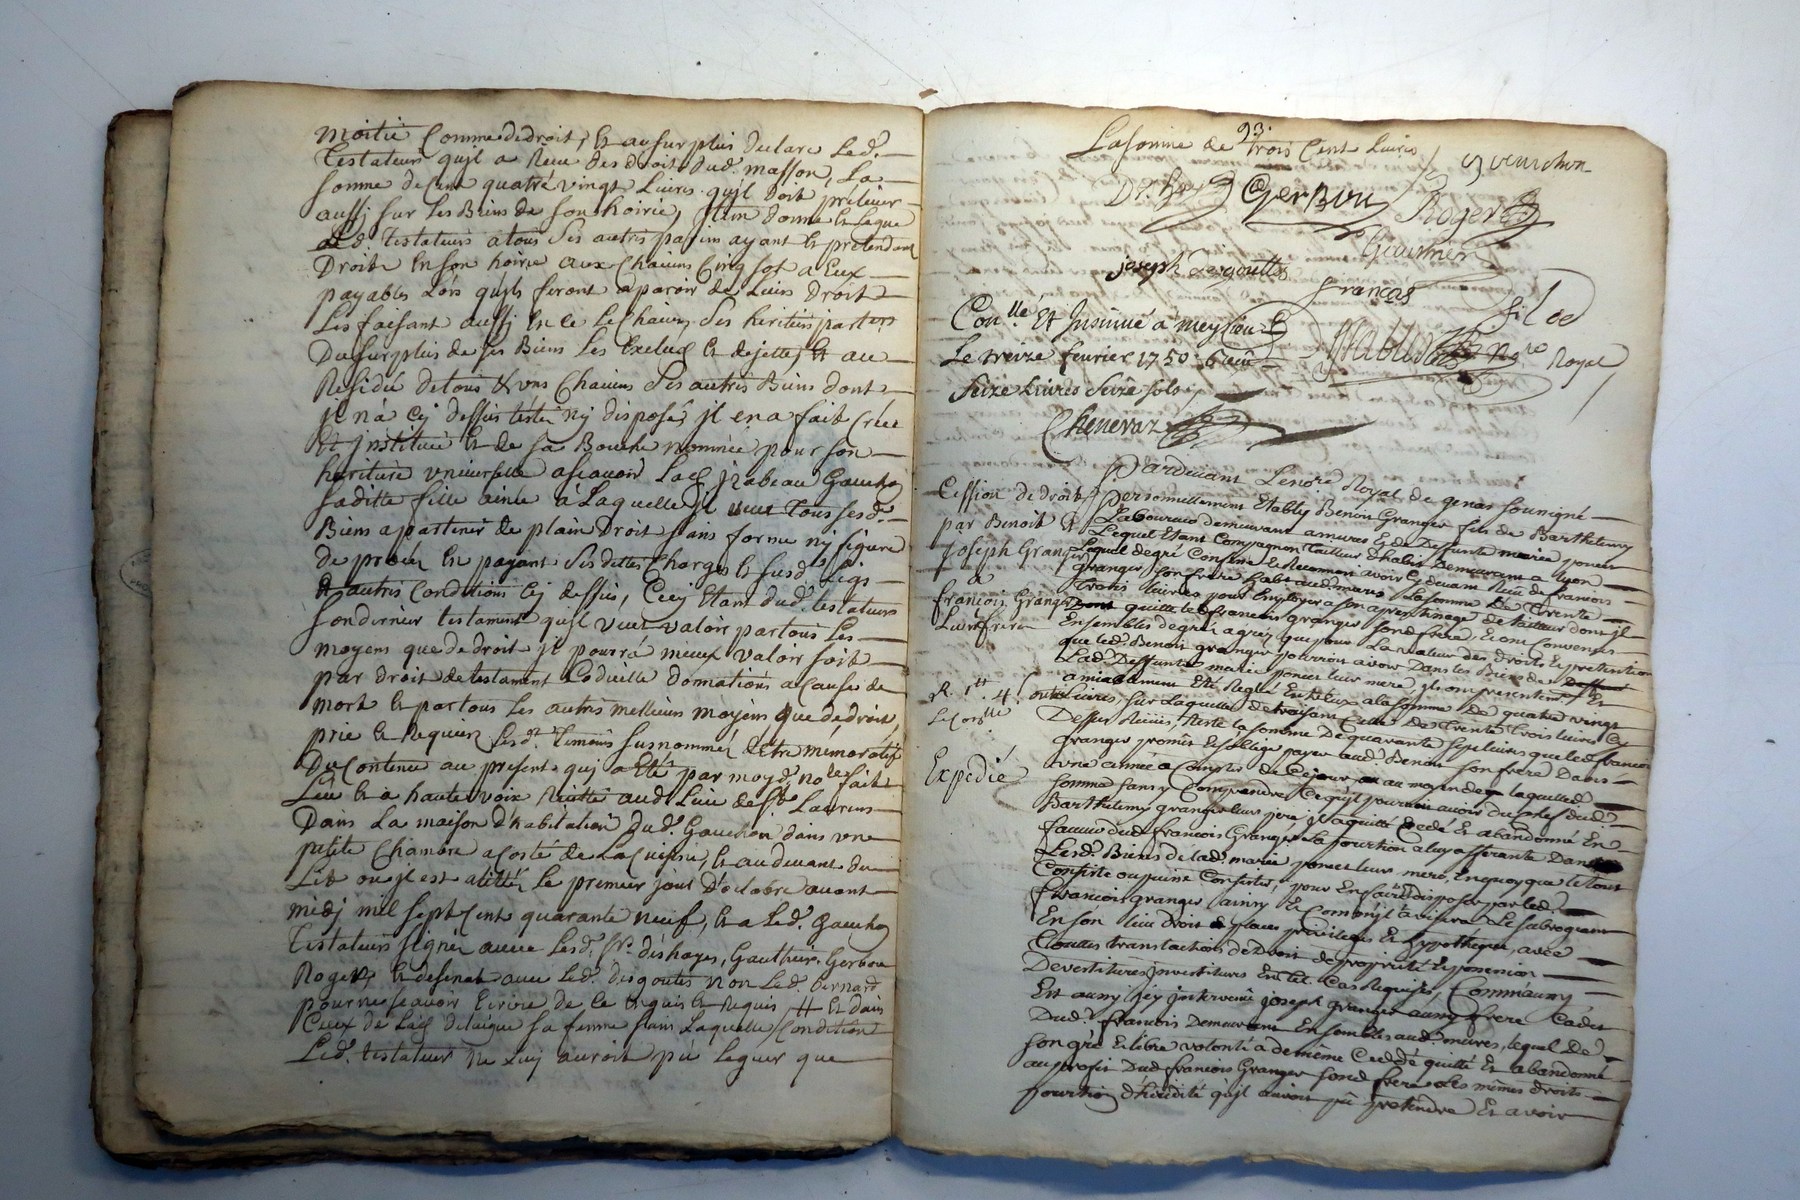 moitié Comme de droit, Et au surplus declare Led.
Testateur qu'jl a Reçu des droits dud. masson, La
somme de Cent quatre vingt Livres qu'jl doit prélever
aussj sur Les Biens de son hoirie, jtem donne et Legue
Led. Testateur a tous ses autres parans ayant et prétendant
Droits En son hoirie aux Chacuns Cinq sol a Eux
payables Lors qu'jls feront aparoir de Leurs droits
Les faisant aussj En ce Le Chacun ses heritiers particrs
Du surplus de ses Biens Les Exclud et dejette, Et au
Residu de tous Et uns Chacuns ses autres Biens dont
jl n'a cy dessus testé nj disposé, jl en a fait Créé
Et jnstitué Et de sa Bouche nommée pour son
heritiere universelle a scavoir Lad. jzabeau Gauchon
sa ditte fille ainée a Laquelle jl veut Tous sesd.
Biens apartenir de plain Droit sans forme nj figure
de procès En payant sesdittes Charges et susd. Legs
Et autres Conditions Cy dessus, Cecy Etant dud. testateur
son dernier testament qu'jl veut valoir par tous Les
moyens que de droit jl pourra mieux valoir soit
par droit de testament Codicille donnations a Cause de
mort et par tous Les autres meilleurs moyens que de droit,
prié et Requis Lesd. Temoins susnommés d'Etre mémoratifs
Du Contenu au present qui a Eté par moyd. nore fait
Leu Et a haute voix Recitté aud. Lieu de St. Laurens
Dans La maison d'habitation dud. Gauchon dans une
petite Chambre a costé de La Cuisine, Et au devant du
Lit ou jl est alitté, Le premier jour d'octobre avant
midj mil sept Cent quarante neuf, Et a Led. Gauchon
Testateur signé avec Lesd. Sr. déshayes, Gauthier, Gerbou
Roger, Et desenat avec Led. desgoutes non Led. bernard
pour ne scavoir Ecrire de ce Enquis et Requis # Et dans
Ceux de Lad. delaigue sa femme sans Laquelle Condition
Led. testateur ne Luy auroit pû Leguer que
93.
La somme de Trois Cent Livres
Gauchon
Gerbou Roger
joseph Desgouttes
francois
Conlle. Et Insinué a meyzieu
Le treize fevrier 1750. Receu
Seize Livres Seize sols
nore Royal
Chenevaz
Cession de droits
par Benoit Et
Joseph Granger
a
francois Granger
Leur frere
Expedié
Pardevant Le nore Royal de genas soussigné
Personnellement Etably Benoit Granger fils de Barthelemy
Laboureur demeurant a mures Et de Deffunte marie poncet
Lequel Etant Compagnon Tailleur d'habits Demeurant a Lyon
Lequel de gré Confesse Et Reconnoit avoir cy devant Reçu de francois
Granger son frere habt. aud. mures La somme De Trente
Trois Livres pour Employer a son aprentissage de tailleur dont jl
quitte led. francois granger sond. frere, Et ont Convenus
Ensembles de gré a gré, que pour La valeur des droits Et pretention
que led. Benoit granger pourroit avoir Dans les Biens de
Lad. Deffunte marie poncet leur mere, jls ont presentement Et
amiablement Eté Reglé Entr'Eux a la somme De quatre vingt
Livres, sur Laquelle detraisant Celle de Trente Trois livres Cy
Dessus Reçues, Reste la somme De quarante sept livres que led. francois
Granger promet Et s'oblige payer aud. Benoit son frere Dans
une année a Compter de Ce jour, au moyen de laquelle
somme sans y Comprendre Ce qu'jl pourroit avoir du chef dud.
Barthelemy granger leur pere, jl a quitté Cedé Et abandonné En
faveur dud. francois Granger La pourtion a luy afferante Dans
Lesd. Biens de lad. marie poncet leur mere, En quoy que le tout
Consiste ou puisse Consister, pour En faire Disposer par led.
francois granger ainsy Et Comm'jl avisera Le subrogeant
En son lieu Droit place privileges Et hypotheque, avec
Touttes translations de Droit de proprieté Et possession
Devestitures jnvestitures En tel Cas Requises, Comm'aussy
Est aussy jcy jntervenu joseph granger aussy frere Cadet
Dud. francois Demeurant Ensembles aud. mures, lequel De
son gré Et libre volonté a de même Ceddé quitté Et abandonné
au profit Dud. francois Granger sond. frere Les mêmes droits
pourtion d'heredité qu'jl auroit pû pretendre Et avoir